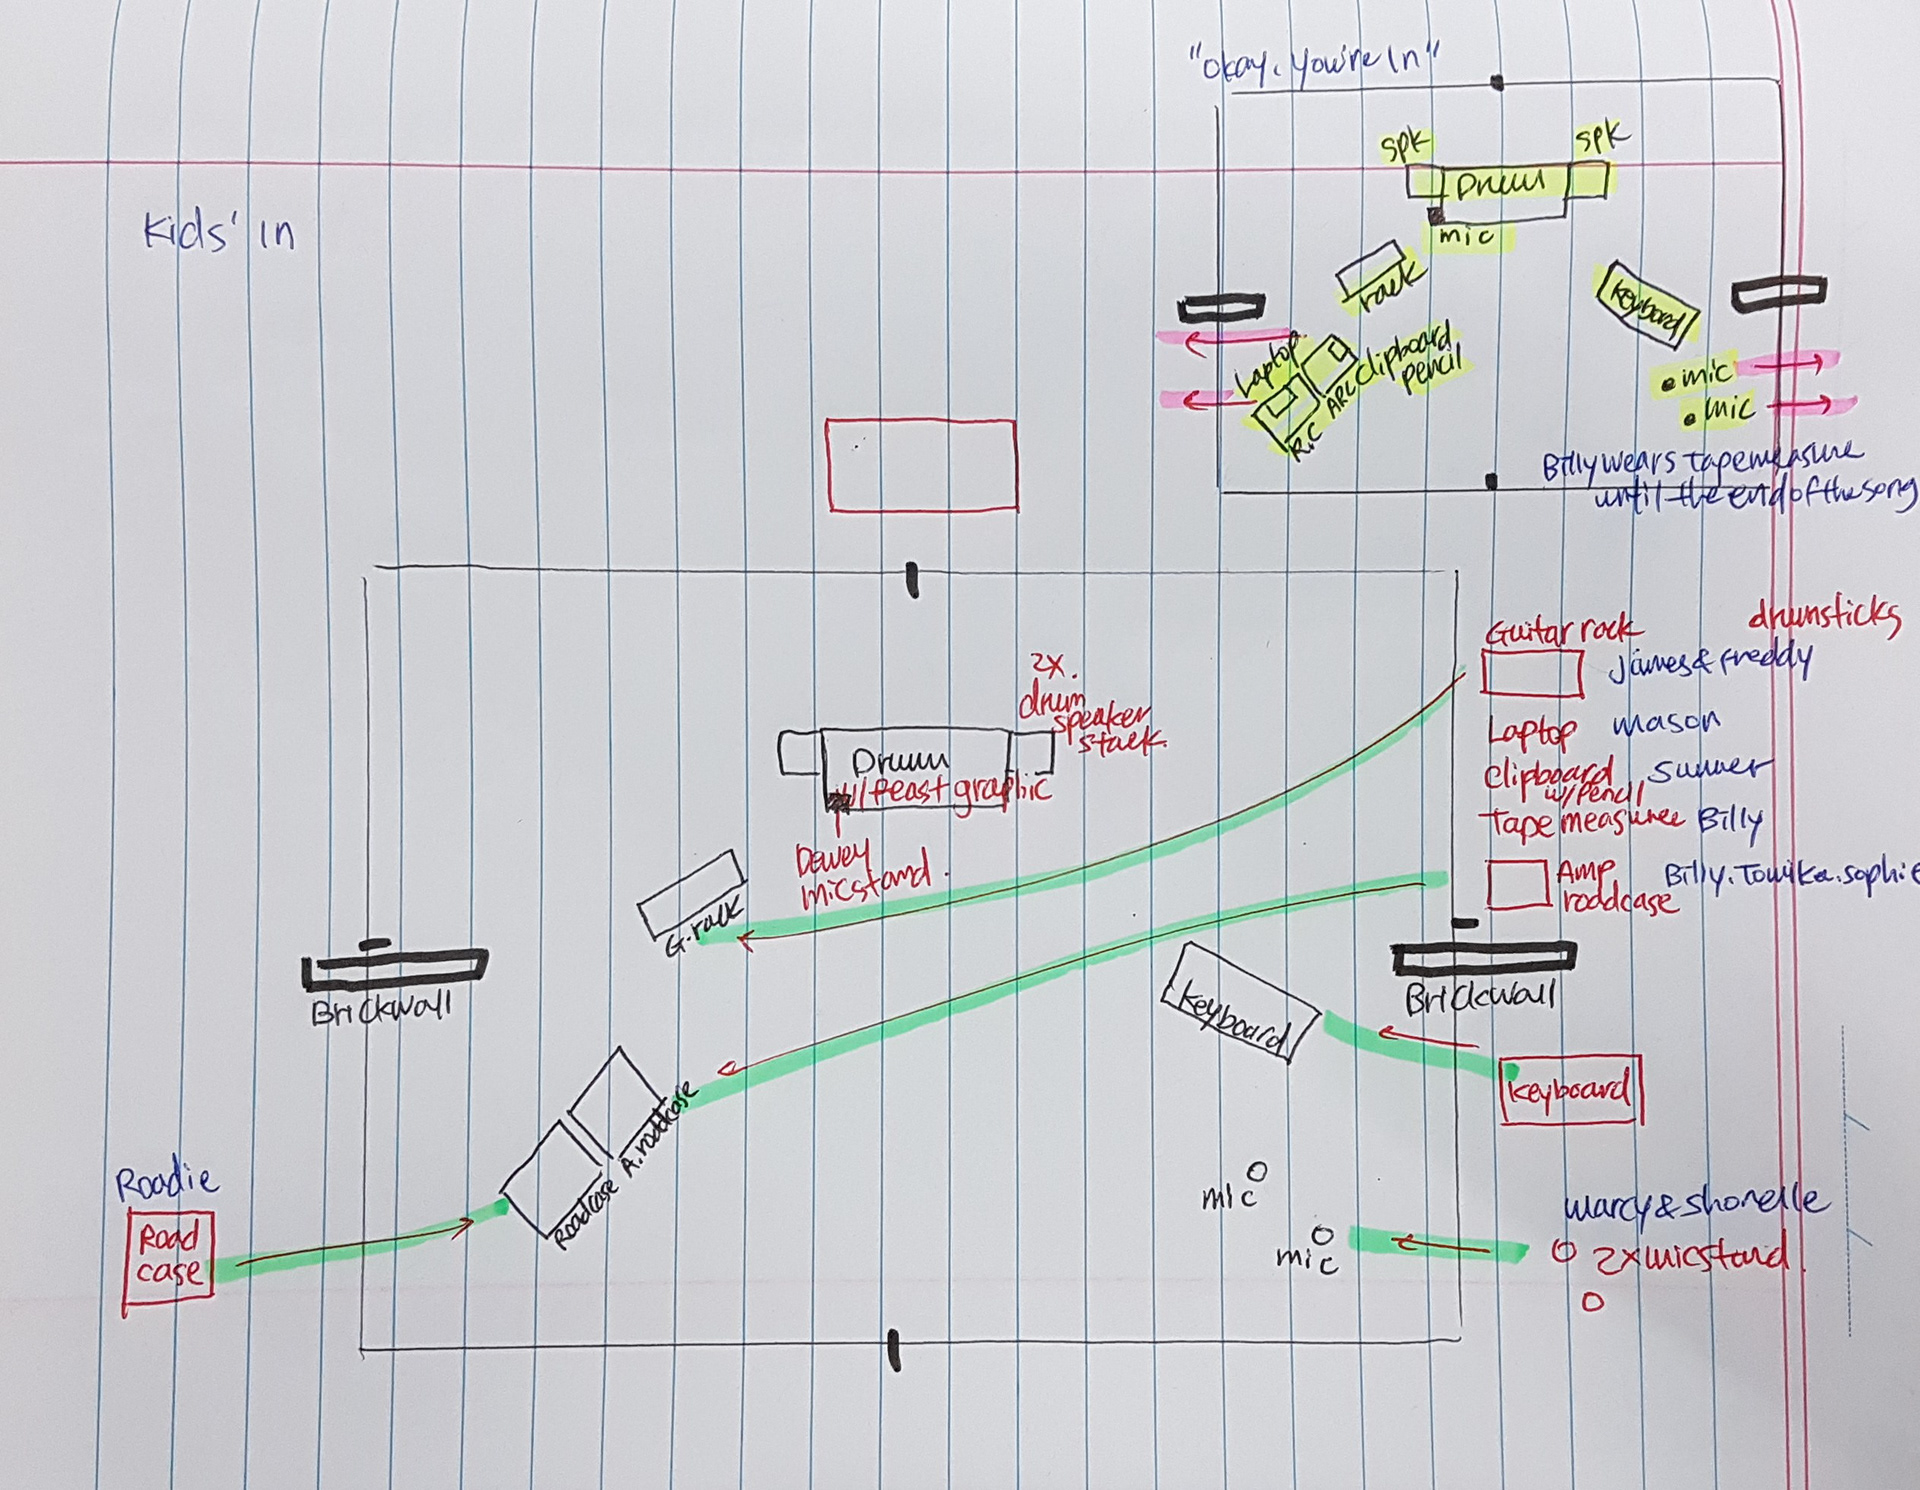 "Okay, You're In"
Kids' In
spk
spk
Drum
mic
rack
Keyboard
Laptop
Clipboard
pencil
ARC
R.C
mic
mic
Billy wears tapemeasure
until the end of the song
Guitar rack
drumsticks
James & Freddy
2x.
drum
speaker
stack
Drum
w/ feast graphic
Laptop
Mason
Clipboard
w/ Pencil
Summer
Tape measure
Billy
Dewey
micstand.
Amp
roadcase
Billy. Tomika. Sophie
G.rack
Brickwall
Brickwall
Keyboard
Keyboard
A.roadcase
Roadcase
Roadie
Road
case
mic
mic
Marcy & Shonelle
2x micstand